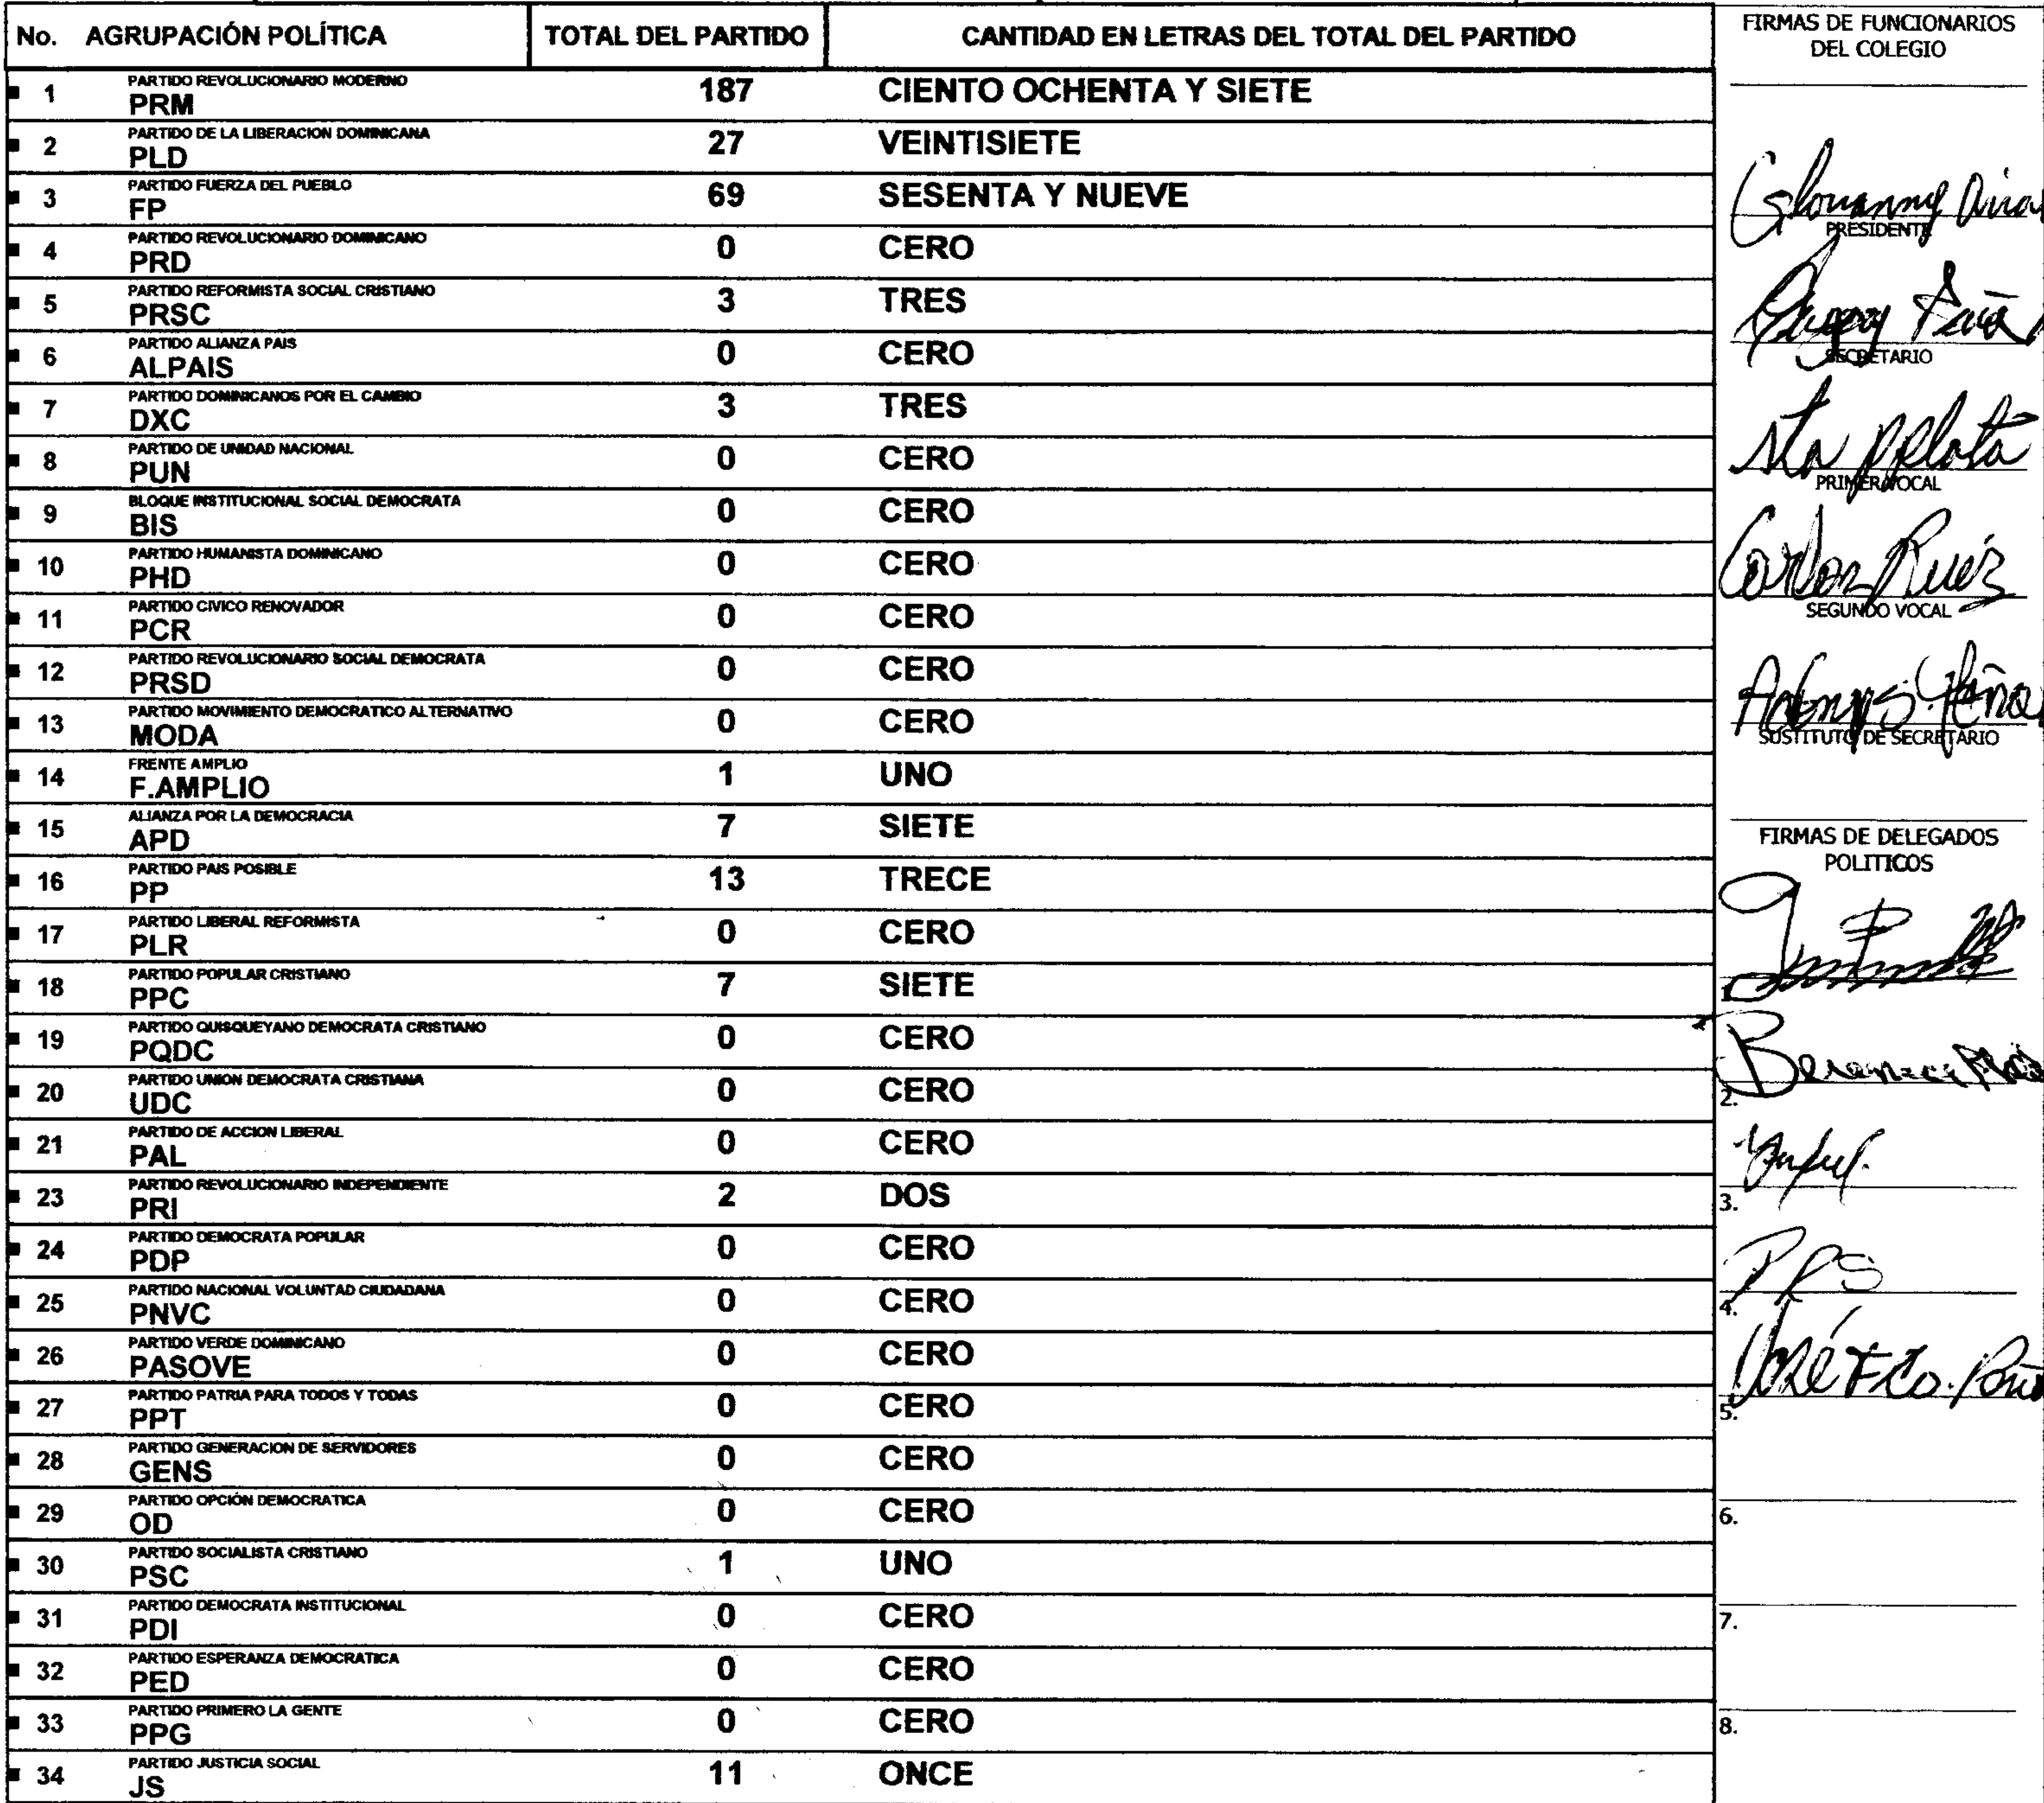 No. AGRUPACIÓN POLÍTICA TOTAL DEL PARTIDO CANTIDAD EN LETRAS DEL TOTAL DEL PARTIDO
PARTIDO REVOLUCIONARIO MODERNO
1 PRM 187 CIENTO OCHENTA Y SIETE
PARTIDO DE LA LIBERACION DOMINICANA
2 PLD 27 VEINTISIETE
PARTIDO FUERZA DEL PUEBLO
3 FP 69 SESENTA Y NUEVE
PARTIDO REVOLUCIONARIO DOMINICANO
4 PRD 0 CERO
PARTIDO REFORMISTA SOCIAL CRISTIANO
5 PRSC 3 TRES
PARTIDO ALIANZA PAIS
6 ALPAIS 0 CERO
PARTIDO DOMINICANOS POR EL CAMBIO
7 DXC 3 TRES
PARTIDO DE UNIDAD NACIONAL
8 PUN 0 CERO
BLOQUE INSTITUCIONAL SOCIAL DEMOCRATA
9 BIS 0 CERO
PARTIDO HUMANISTA DOMINICANO
10 PHD 0 CERO
PARTIDO CIVICO RENOVADOR
11 PCR 0 CERO
PARTIDO REVOLUCIONARIO SOCIAL DEMOCRATA
12 PRSD 0 CERO
PARTIDO MOVIMIENTO DEMOCRATICO ALTERNATIVO
13 MODA 0 CERO
FRENTE AMPLIO
14 F.AMPLIO 1 UNO
ALIANZA POR LA DEMOCRACIA
15 APD 7 SIETE
PARTIDO PAIS POSIBLE
16 PP 13 TRECE
PARTIDO LIBERAL REFORMISTA
17 PLR 0 CERO
PARTIDO POPULAR CRISTIANO
18 PPC 7 SIETE
PARTIDO QUISQUEYANO DEMOCRATA CRISTIANO
19 PQDC 0 CERO
PARTIDO UNION DEMOCRATA CRISTIANA
20 UDC 0 CERO
PARTIDO DE ACCION LIBERAL
21 PAL 0 CERO
PARTIDO REVOLUCIONARIO INDEPENDIENTE
23 PRI 2 DOS
PARTIDO DEMOCRATA POPULAR
24 PDP 0 CERO
PARTIDO NACIONAL VOLUNTAD CIUDADANA
25 PNVC 0 CERO
PARTIDO VERDE DOMINICANO
26 PASOVE 0 CERO
PARTIDO PATRIA PARA TODOS Y TODAS
27 PPT 0 CERO
PARTIDO GENERACION DE SERVIDORES
28 GENS 0 CERO
PARTIDO OPCIÓN DEMOCRATICA
29 OD 0 CERO
PARTIDO SOCIALISTA CRISTIANO
30 PSC 1 UNO
PARTIDO DEMOCRATA INSTITUCIONAL
31 PDI 0 CERO
PARTIDO ESPERANZA DEMOCRATICA
32 PED 0 CERO
PARTIDO PRIMERO LA GENTE
33 PPG 0 CERO
PARTIDO JUSTICIA SOCIAL
34 JS 11 ONCE
FIRMAS DE FUNCIONARIOS
DEL COLEGIO
PRESIDENTE
SECRETARIO
PRIMER VOCAL
Carlos Ruíz
SEGUNDO VOCAL
SUSTITUTO DE SECRETARIO
FIRMAS DE DELEGADOS
POLITICOS
1.
2.
3.
4.
José Fco.
5.
6.
7.
8.